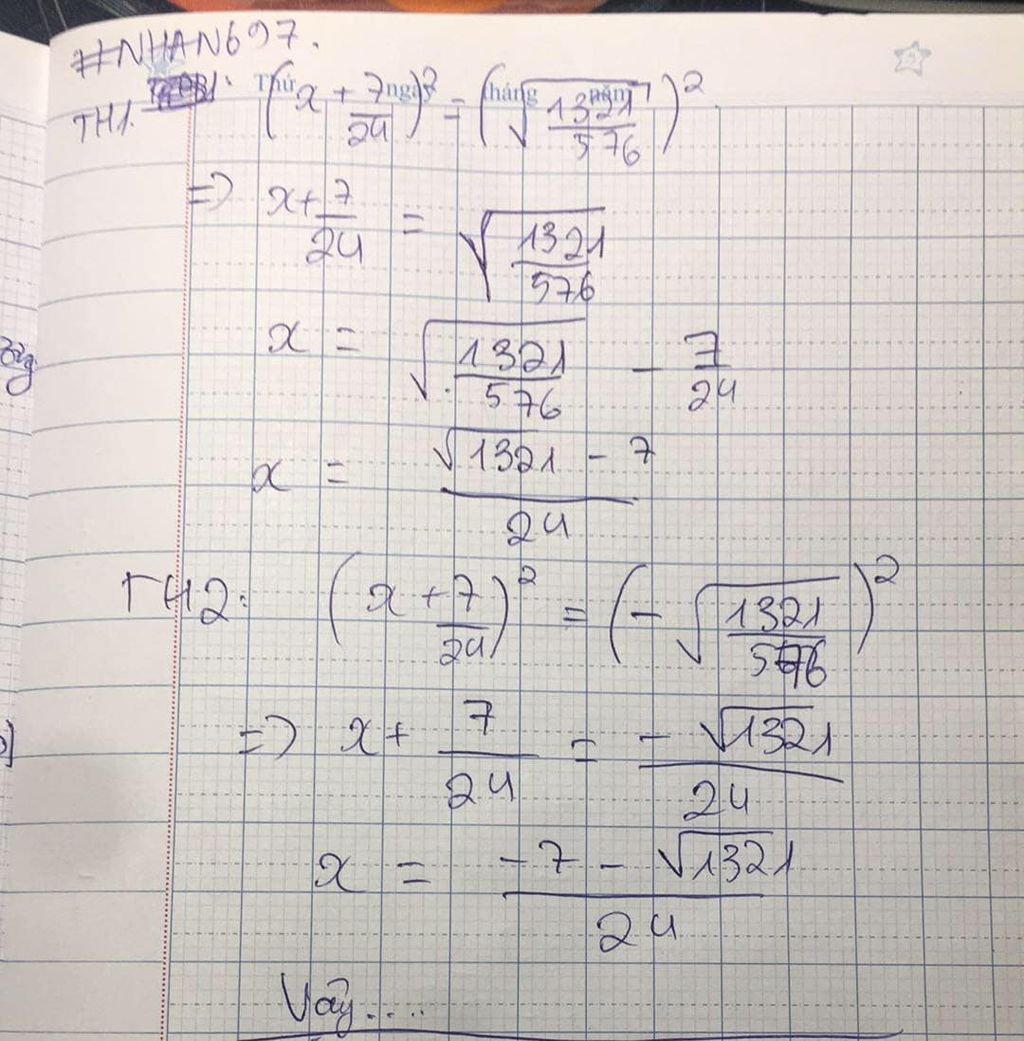 #NHAN697.
Thứ ngày tháng năm
TH1. (x + 7/24)² = (√(1321/576))²
=> x + 7/24 = √(1321/576)
x = √(1321/576) - 7/24
x = (√1321 - 7)/24
TH2: (x + 7/24)² = (-√(1321/576))²
=> x + 7/24 = -√1321/24
x = (-7 - √1321)/24
Vậy.....